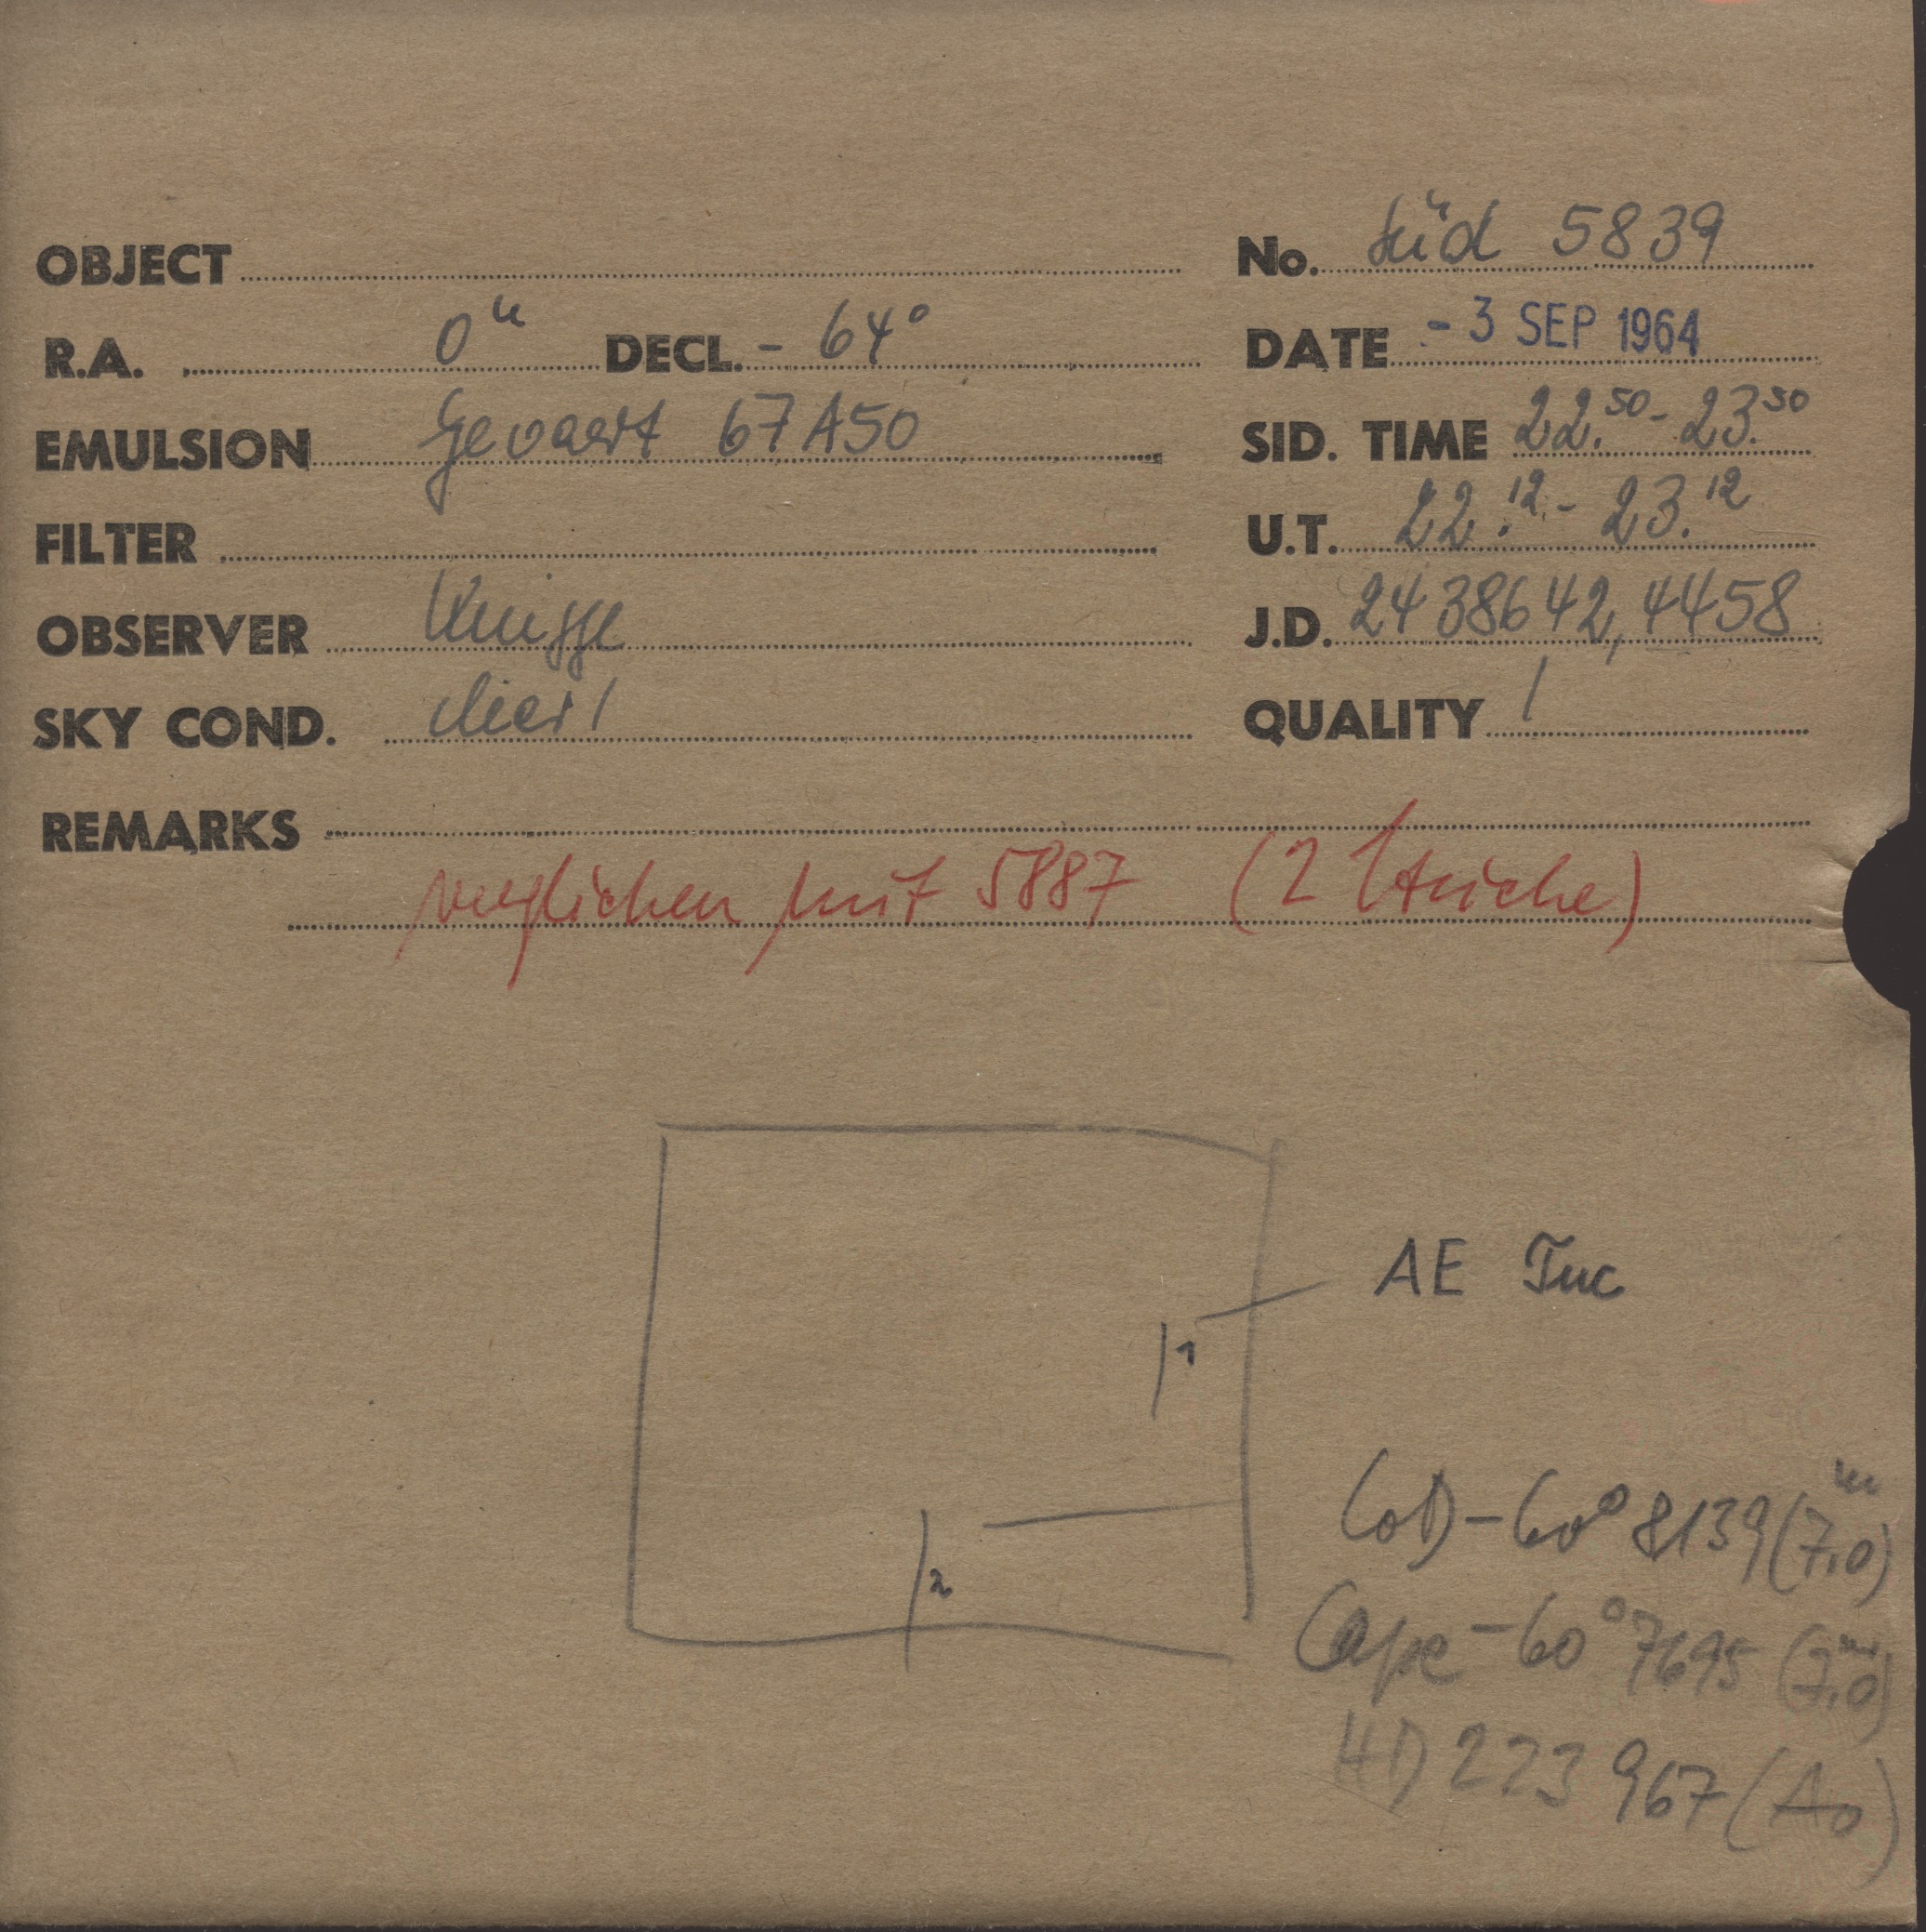 OBJECT
No. Süd 5839
R.A. 0h DECL. - 64°
DATE - 3 SEP 1964
EMULSION Gevaert 67A50
SID. TIME 22.50 - 23.50
FILTER
U.T. 22.12 - 23.12
OBSERVER Knigge
J.D. 2438642,4458
SKY COND. klar 1
QUALITY 1
REMARKS
verglichen mit 5887 (2 Striche)
AE Tuc
1
CoD -60° 8139 (7,0m)
2
Cape -60° 7695 (7,0m)
HD 223967 (A0)